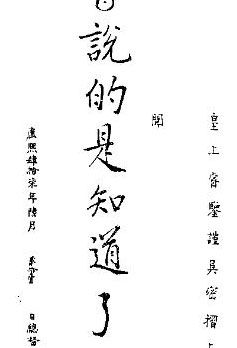 皇上睿鑒謹具密摺
聞
說的是知道了
康熙肆拾柒年陸月 日總督